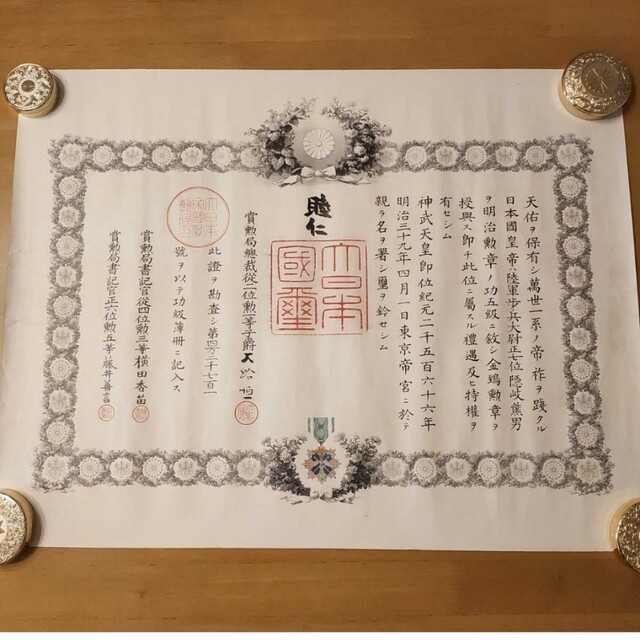 天佑ヲ保有シ萬世一系ノ帝祚ヲ踐タル
日本國皇帝ハ陸軍歩兵大尉正七位隠岐蕉男
ヲ明治勲章ノ功五級ニ敘シ金鵄勲章ヲ
授與ス即チ此位ニ屬スル禮遇及ヒ特權ヲ
有セシム
神武天皇即位紀元二千五百六十六年
明治三十九年四月一日東京帝宮ニ於テ
親ラ名ヲ署シ璽ヲ鈐セシム
睦仁
大日本
國璽
賞勲局總裁從二位勲一等子爵大給恒
此證ヲ勘査シ第四万二千七百一
號ヲ以テ功級薄冊ニ記入ス
賞勲局書記官從四位勲三等横田香苗
賞勲局書記官正六位勲五等藤井善言